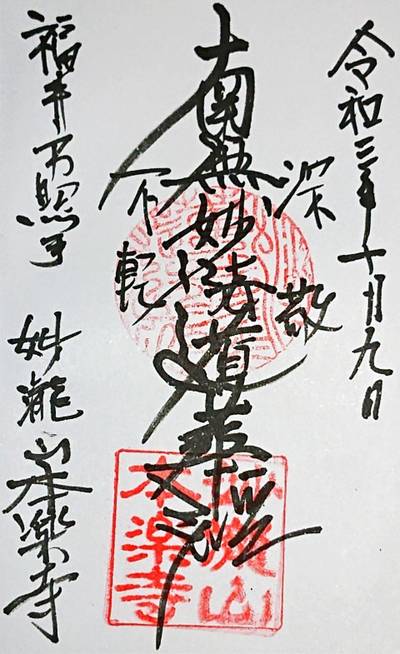 令和三年十月九日
深敬
南無妙法蓮華経
福井市照手 妙瀧山本楽寺
妙瀧山
本楽寺